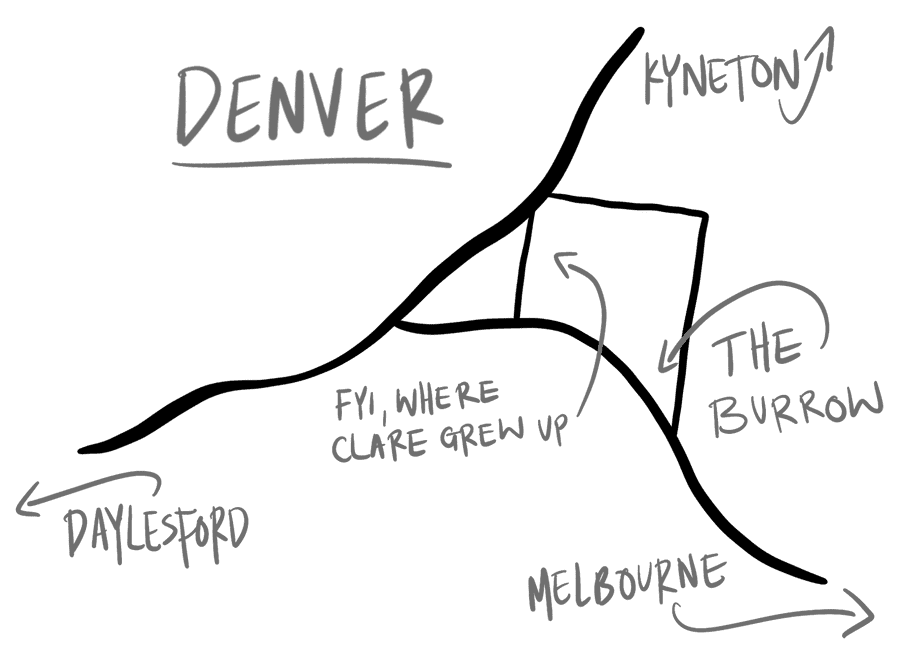 DENVER
KYNETON
THE
BURROW
FYI, WHERE
CLARE GREW UP
DAYLESFORD
MELBOURNE